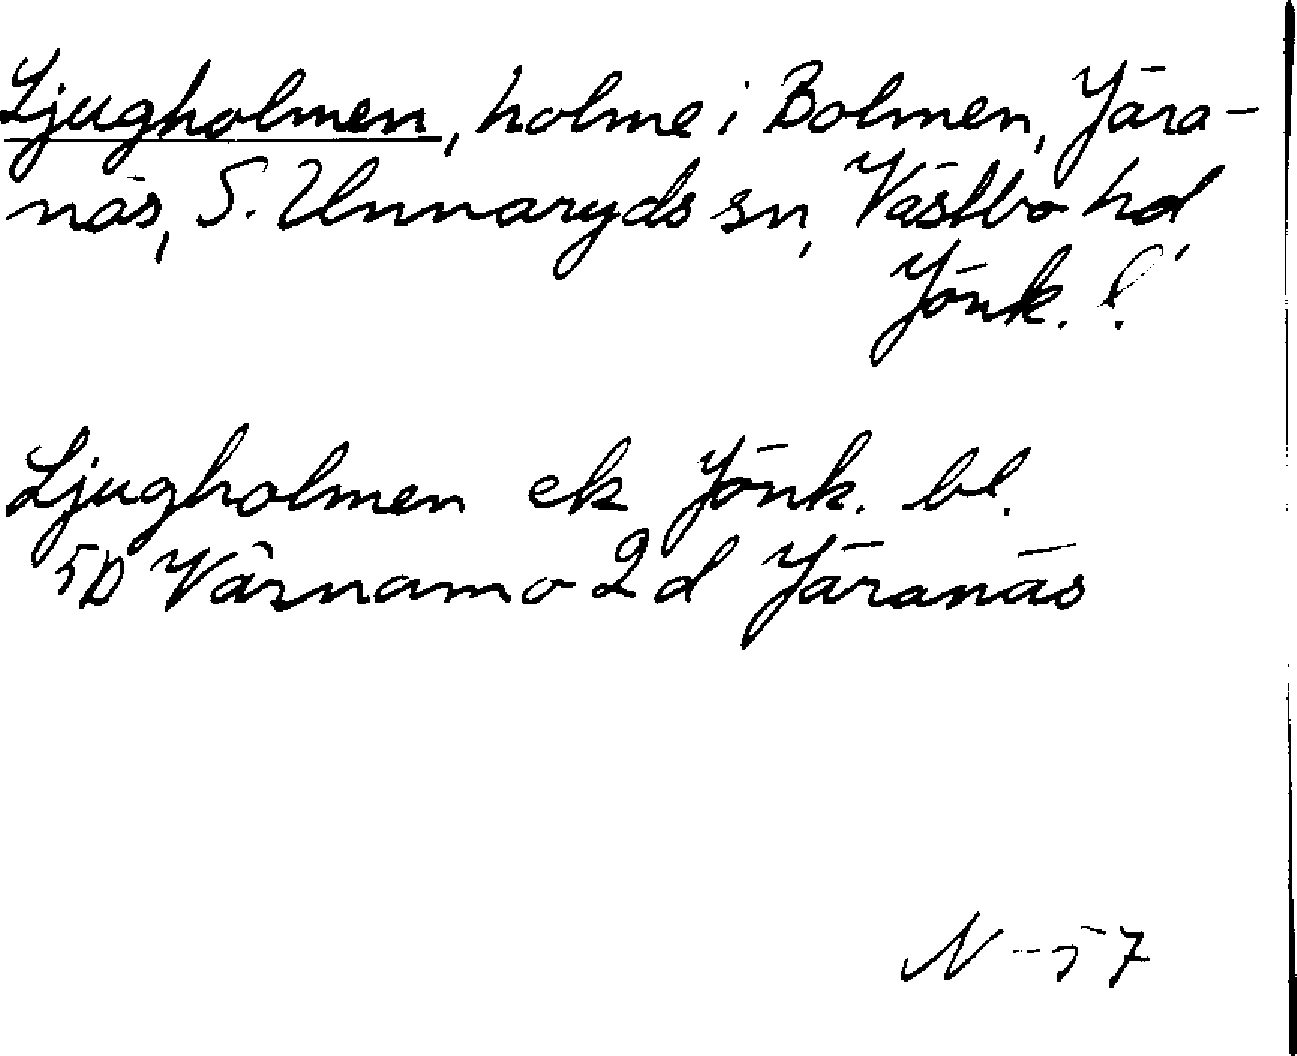 Ljugholmen, holme i Bolmen, Jära-
näs, S. Unnaryds sn, Västbo hd,
Jönk. l.
Ljugholmen ek Jönk. bl.
5D Värnamo 2d Järanäs
N-57